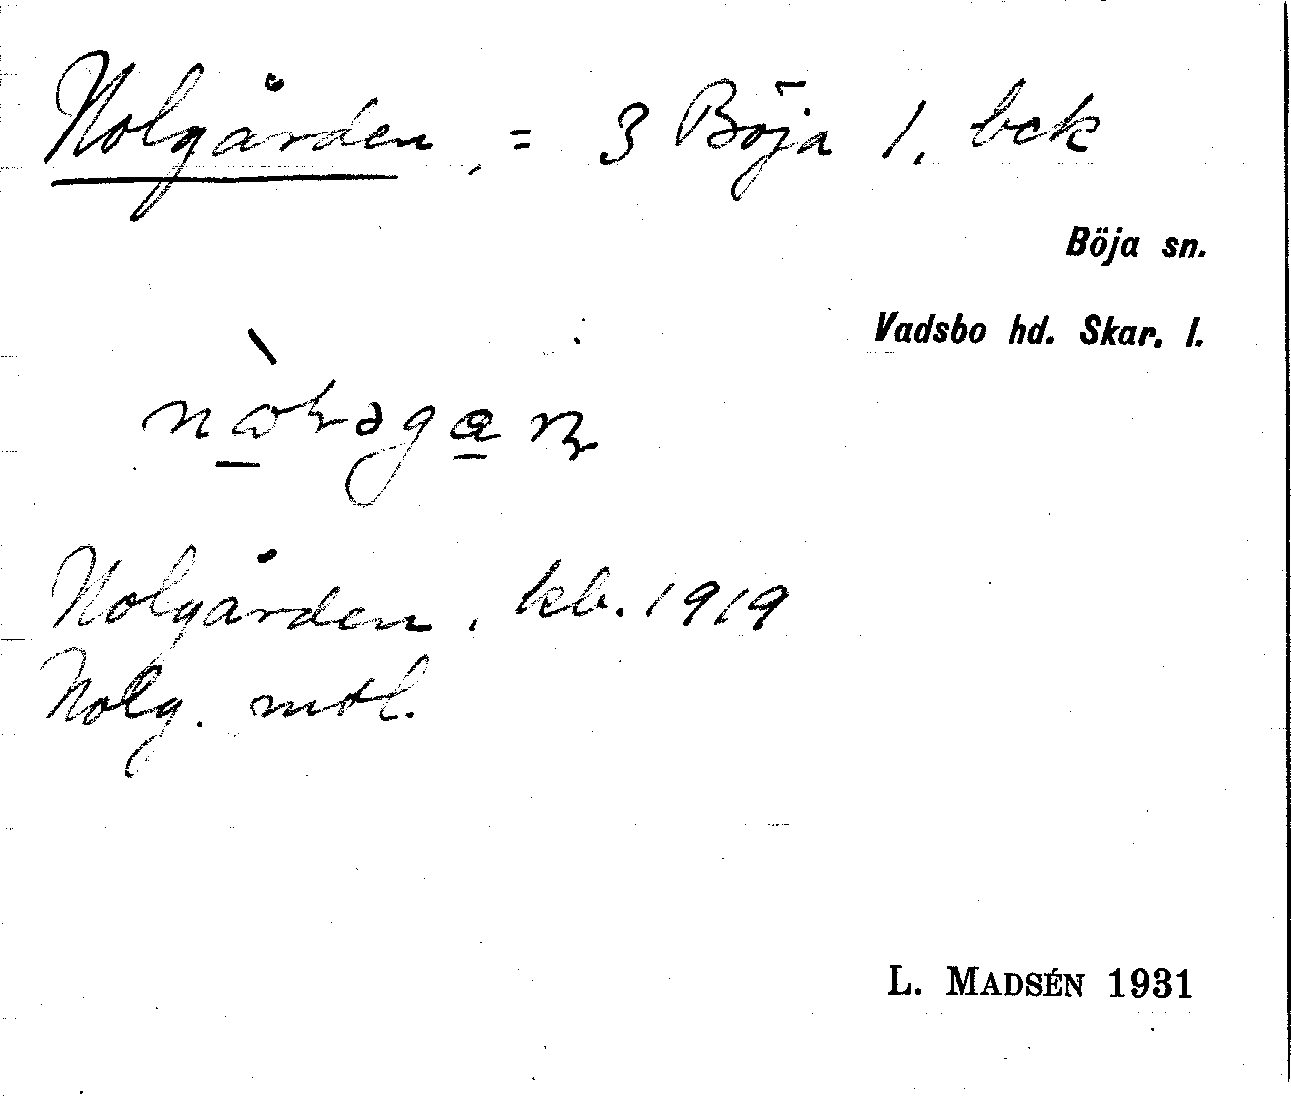 Nolgården, = 3 Böja 1. bck
Böja sn.
Vadsbo hd. Skar. l.
Nolgården, kb. 1919
Nolg. mtl.
L. MADSÉN 1931